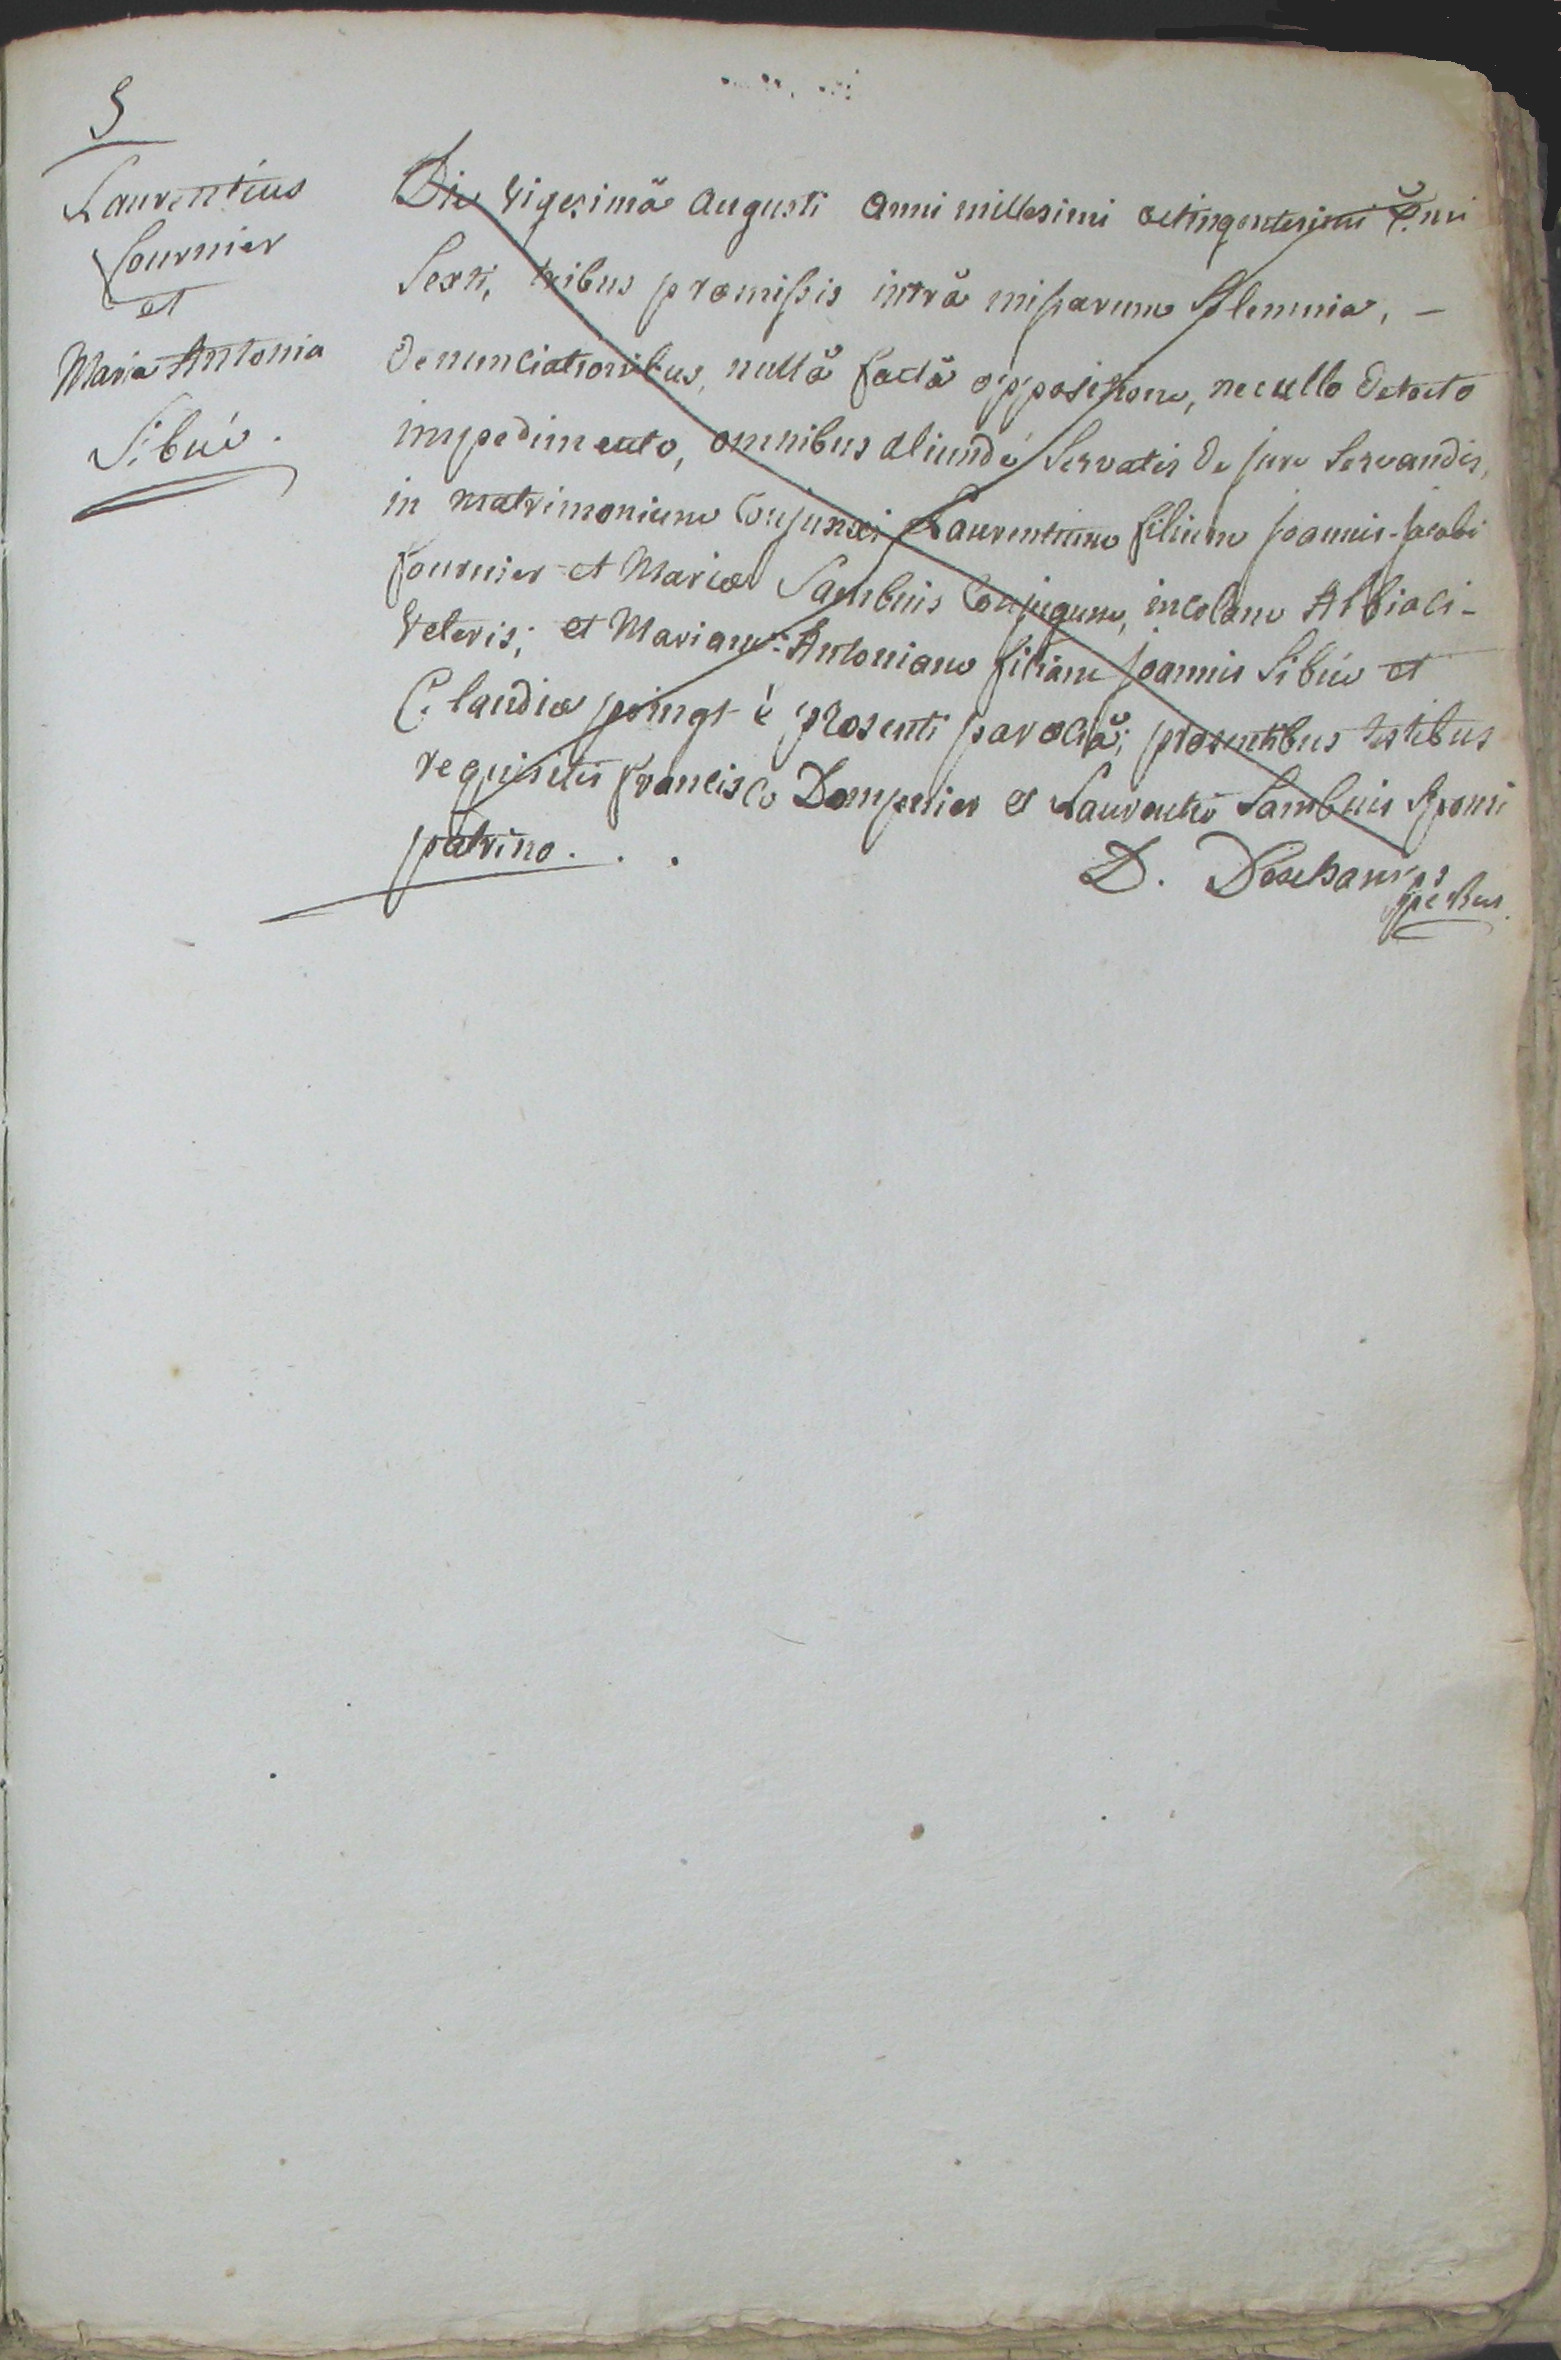 5
Laurentius
fournier
et
Maria Antonia
Sibué.
Die Vigesimâ Augusti Anni millesimi octingentesimi
Sexti, tribus præmissis intrà missarum Solemnia, -
denunciationibus, nullâ factâ oppositione, nec ullo detecto
impedimento, omnibus aliundè Servatis de jure Servandis,
in matrimonium Conjunxi Laurentium filium joannis-jacobi
fournier et Mariæ Sambuis Conjugum, incolam Albiaci-
Veteris; et Mariam-Antoniam filiam joannis Sibúe et
Claudiæ poingt è præsenti parochiâ; præsentibus testibus
requisitis francisco Dompnier et Laurentio Sambuis Sponsi
patrino. . .
D. Deschamps